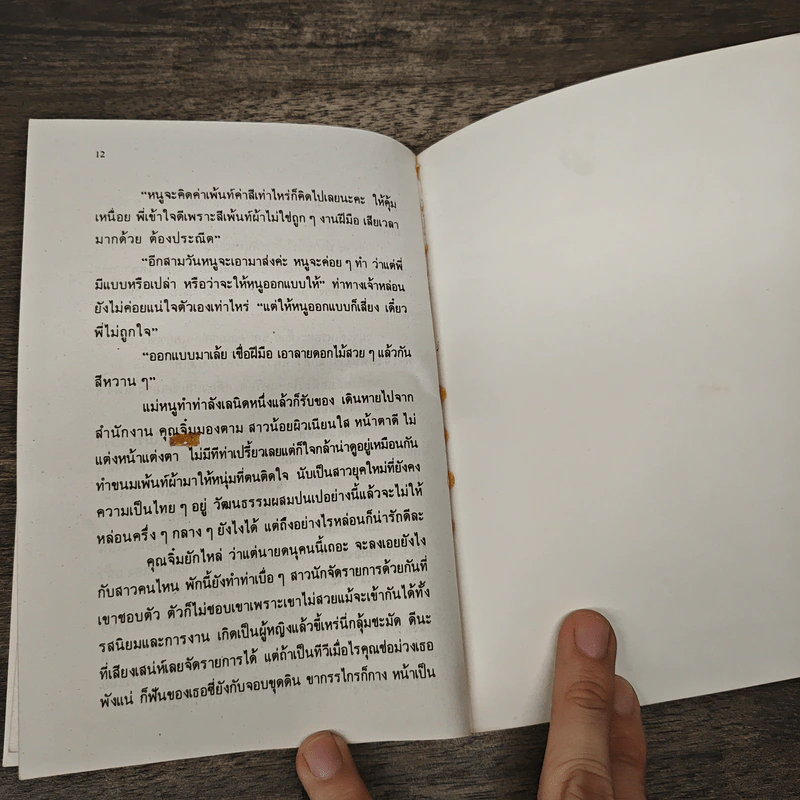 12
“หนูจะคิดค่าเพ้นท์ค่าสีเท่าไหร่ก็คิดไปเลยนะคะ ให้คุ้ม
เหนื่อย พี่เข้าใจดีเพราะสีเพ้นท์ผ้าไม่ใช่ถูก ๆ งานฝีมือ เสียเวลา
มากด้วย ต้องประณีต”
“อีกสามวันหนูจะเอามาส่งค่ะ หนูจะค่อย ๆ ทำ ว่าแต่พี่
มีแบบหรือเปล่า หรือว่าจะให้หนูออกแบบให้” ท่าทางเจ้าหล่อน
ยังไม่ค่อยแน่ใจตัวเองเท่าไหร่ “แต่ให้หนูออกแบบก็เสี่ยง เดี๋ยว
พี่ไม่ถูกใจ”
“ออกแบบมาเล้ย เชื่อฝีมือ เอาลายดอกไม้สวย ๆ แล้วกัน
สีหวาน ๆ”
แม่หนูทำท่าลังเลนิดหนึ่งแล้วก็รับของ เดินหายไปจาก
สำนักงาน คุณจิ๋มมองตาม สาวน้อยผิวเนียนใส หน้าตาดี ไม่
แต่งหน้าแต่งตา ไม่มีทีท่าเปรี้ยวเลยแต่ก็ใจกล้าน่าดูอยู่เหมือนกัน
ทำขนมเพ้นท์ผ้ามาให้หนุ่มที่ตนติดใจ นับเป็นสาวยุคใหม่ที่ยังคง
ความเป็นไทย ๆ อยู่ วัฒนธรรมผสมปนเปอย่างนี้แล้วจะไม่ให้
หล่อนครึ่ง ๆ กลาง ๆ ยังไงได้ แต่ถึงอย่างไรหล่อนก็น่ารักดีละ
คุณจิ๋มยักไหล่ ว่าแต่นายดนุคนนี้เถอะ จะลงเอยยังไง
กับสาวคนไหน พักนี้ยังทำท่าเบื่อ ๆ สาวนักจัดรายการด้วยกันที่
เขาชอบตัว ตัวก็ไม่ชอบเขาเพราะเขาไม่สวยแม้จะเข้ากันได้ทั้ง
รสนิยมและการงาน เกิดเป็นผู้หญิงแล้วขี้เหร่นี่กลุ้มชะมัด ดีนะ
ที่เสียงเสน่ห์เลยจัดรายการได้ แต่ถ้าเป็นทีวีเมื่อไรคุณช่อม่วงเธอ
พังแน่ ก็ฟันของเธอซี่ยังกับจอบขุดดิน ขากรรไกรก็กาง หน้าเป็น